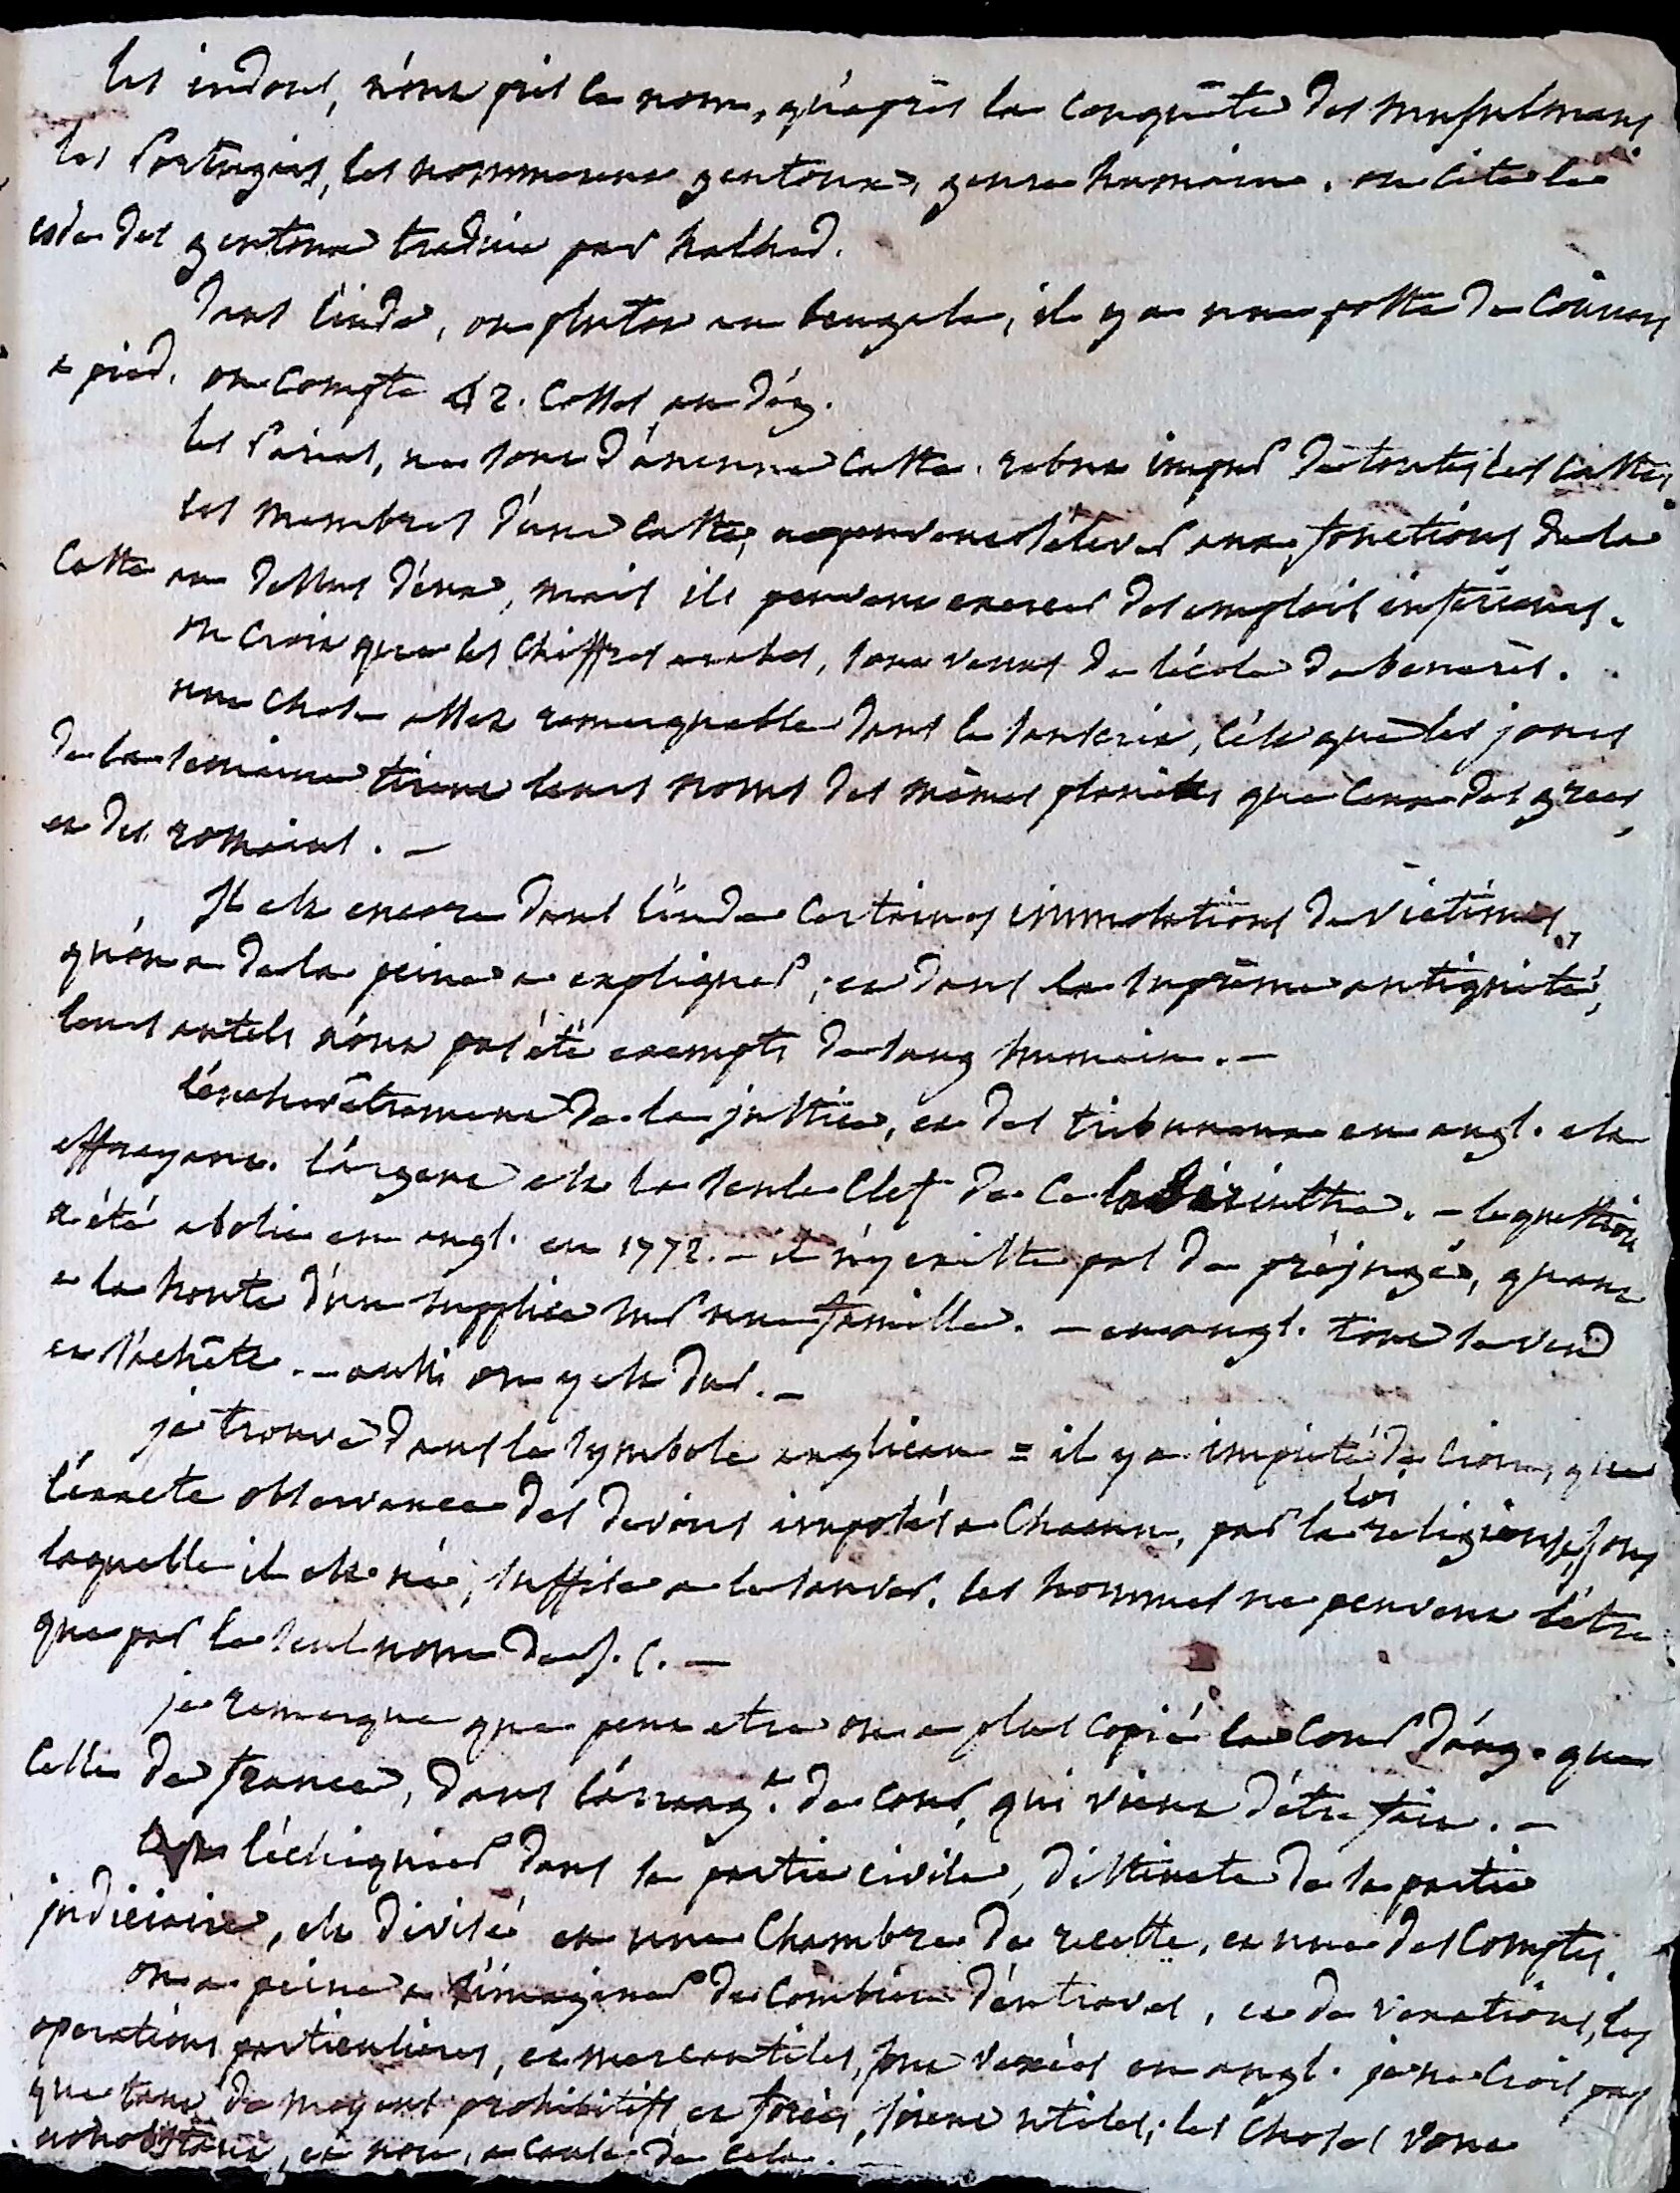 les indous, n'ont pris ce nom, qu'après la conquête des musulmans
les Portugais, les nommerent gentoux, genre humain. on cite le
code des gentoux traduit par halhed.
dans l'inde, ou plutôt au bengale, il y a une poste de Couriers
a pied. on compte 42. cosses au dég.
les Parias, ne sont d'aucune caste. rebut impur de toutes les castes.
les membres d'une caste, ne peuvent s'élever aux fonctions de la
caste au dessus d'eux, mais ils peuvent exercer des emplois inférieurs.
on croit que les chiffres arabes, sont venus de l'école de benarès.
une chose assez remarquable dans le sanscrit, c'est que les jours
de la semaine tirent leurs noms des mêmes planètes que ceux des grecs,
et des romains. —
Il est encore dans l'inde certaines immolations de victimes,
qu'on a de la peine a expliquer; et dans la suprême antiquité,
leurs autels n'ont pas été exempts de sang humain. —
l'enchevêtrement de la justice, et des tribunaux en angl. est
effrayant. l'argent est la seule clef de ce labirinthe. — la question
a été abolie en angl. en 1772. — il n'y existe pas de préjugé, quant
a la honte d'un supplice sur une famille. — en angl. tout se vend
et s'achête. — aussi on y est dur. —
je trouve dans le symbole anglican = il y a impiété de croire, que
l'exacte observance des devoirs imposés a chacun, par la loi religieuse, sous
laquelle il est né, suffise a le sauver. les hommes ne peuvent l'être
que par le seul nom de J. C. —
je remarque que peut etre on a plus copié la Cour d'ang. que
celle de france, dans l'arrang.t de cour, qui vient d'être fait. —
l'échiquier dans sa partie civile, distincte de la partie
judiciaire, est divisé en une Chambre de recette, et une des Comptes.
on a peine a s'imaginer de combien d'entraves, et de vexations, les
operations particulieres, et mercantiles, sont vexées en angl. je ne crois pas
que tant de moyens prohibitifs, et forcés, soient utiles; les choses vont
nonobstant, et non, a cause de cela. —